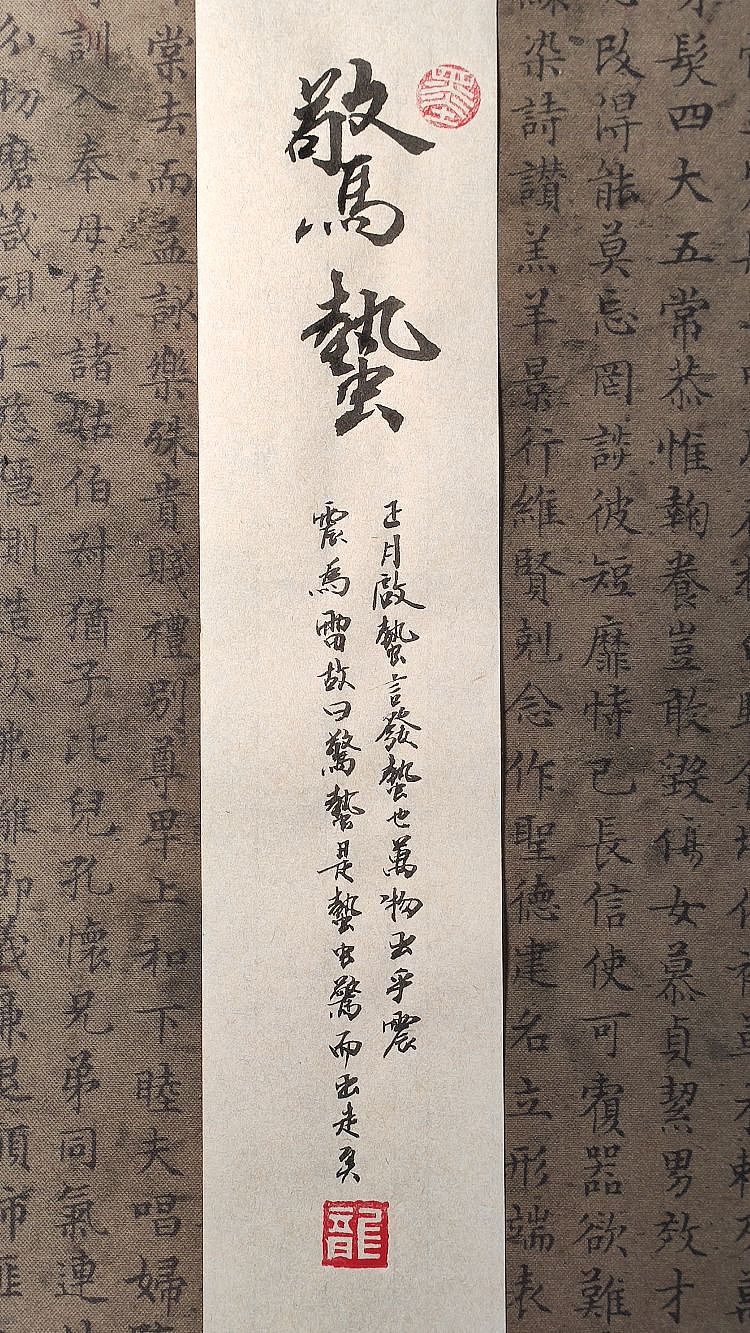 髮四大五常恭惟鞠養豈敢毀傷女慕貞絜男效才
改得能莫忘罔談彼短靡恃己長信使可覆器欲難
染詩讚羔羊景行維賢剋念作聖德建名立形端表
驚蟄
正月啟蟄言發蟄也萬物出乎震
震為雷故曰驚蟄是蟄虫驚而出走矣
龍
棠去而益詠樂殊貴賤禮別尊卑上和下睦夫唱婦
訓入奉母儀諸姑伯叔猶子比兒孔懷兄弟同氣連
切磨箴規仁慈隱惻造次弗離節義廉退顛沛匪